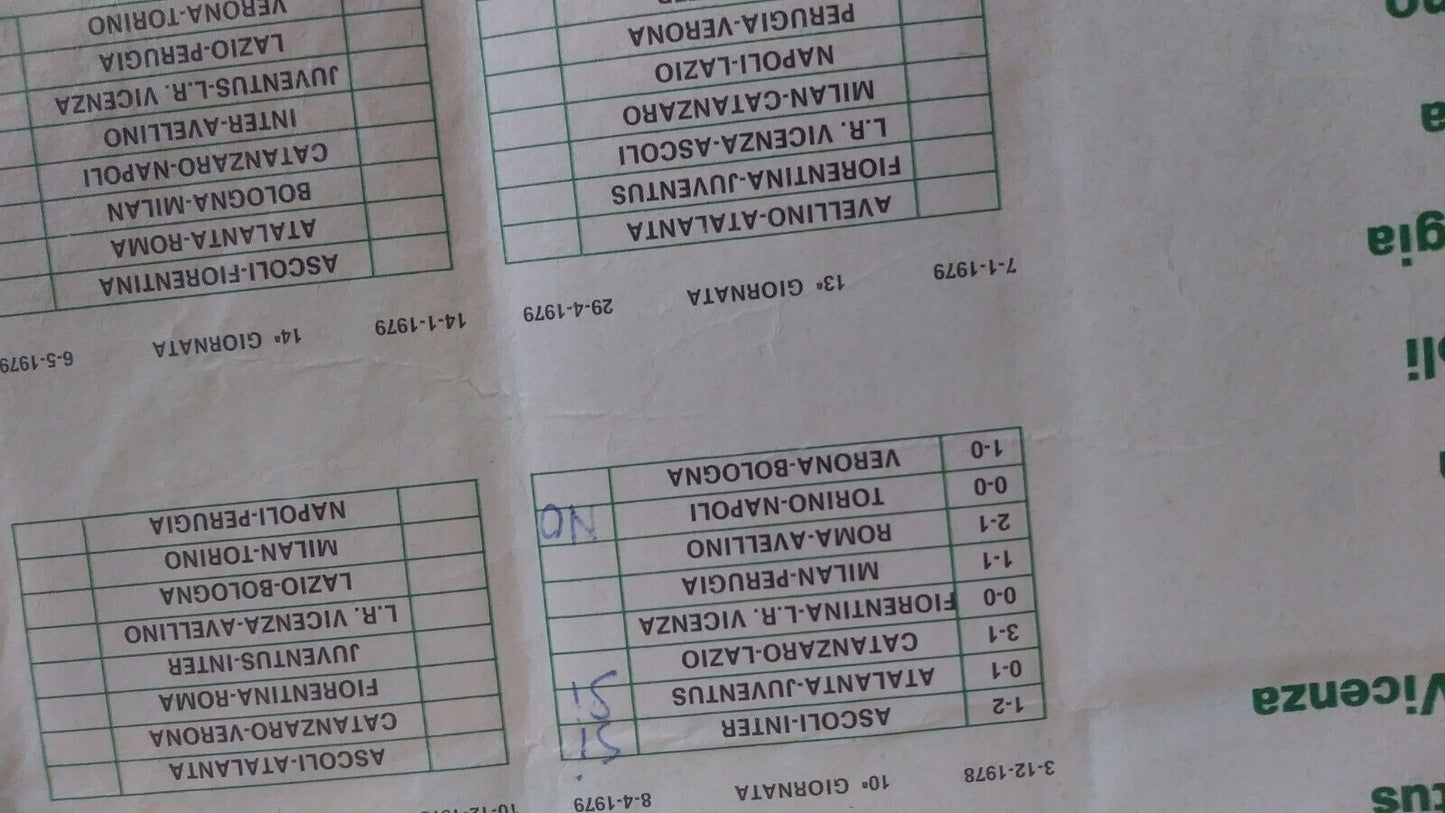 tus
Vicenza
oli
gia
a
no
3-12-1978 10ª GIORNATA 8-4-1979
1-2 ASCOLI-INTER SI
0-1 ATALANTA-JUVENTUS SI
3-1 CATANZARO-LAZIO
0-0 FIORENTINA-L.R. VICENZA
1-1 MILAN-PERUGIA
2-1 ROMA-AVELLINO
0-0 TORINO-NAPOLI NO
1-0 VERONA-BOLOGNA
ASCOLI-ATALANTA
CATANZARO-VERONA
FIORENTINA-ROMA
JUVENTUS-INTER
L.R. VICENZA-AVELLINO
LAZIO-BOLOGNA
MILAN-TORINO
NAPOLI-PERUGIA
7-1-1979 13ª GIORNATA 29-4-1979
AVELLINO-ATALANTA
FIORENTINA-JUVENTUS
L.R. VICENZA-ASCOLI
MILAN-CATANZARO
NAPOLI-LAZIO
PERUGIA-VERONA
14-1-1979 14ª GIORNATA 6-5-1979
ASCOLI-FIORENTINA
ATALANTA-ROMA
BOLOGNA-MILAN
CATANZARO-NAPOLI
INTER-AVELLINO
JUVENTUS-L.R. VICENZA
LAZIO-PERUGIA
VERONA-TORINO